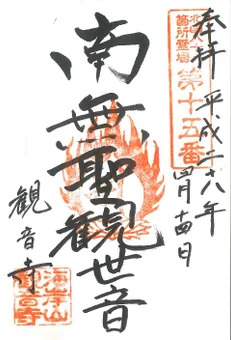 奉拝
平成二十八年
四月十四日
第十五番
南無聖観世音
観音寺
海岸山
観音寺